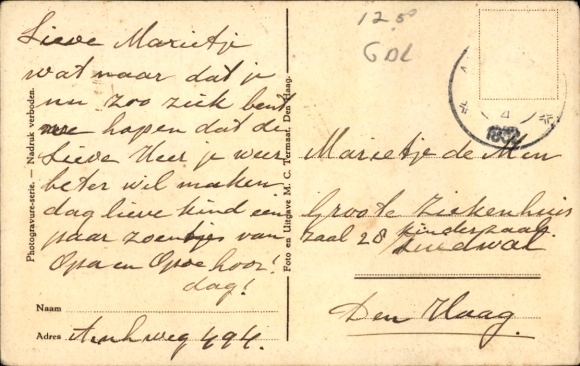 Lieve Marietje
wat naar dat je
nu zoo ziek bent
we hopen dat de
Lieve Heer je weer
beter wil maken
dag lieve kind een
paar zoentjes van
Opa en Opoe hoor!
dag!
Naam
Adres Arnhweg 494.
Photogravure-serie. — Nadruk verboden.
Foto en Uitgave M. C. Termaat. Den Haag.
12.50
GDL
4
Marietje de Men
Groote Ziekenhuis
zaal 28 kinderzaal
Zuidwal
Den Haag.